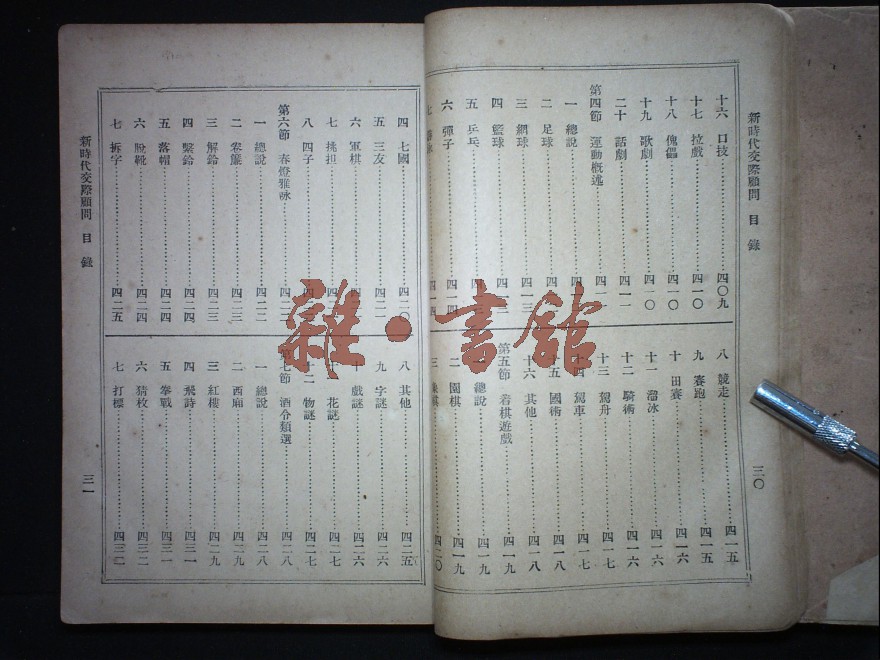 新時代交際顧問 目錄
三〇
十六 口技 四〇九
十七 拉戲 四一〇
十八 傀儡 四一〇
十九 歌劇 四一〇
二十 話劇 四一一
第四節 運動概述
一 總說
二 足球
三 網球
四 籃球
五 乒乓
六 彈子
七
八 競走 四一五
九 賽跑 四一五
十 田賽 四一六
十一 溜冰 四一六
十二 騎術 四一六
十三 駕舟 四一七
十四 駕車 四一七
十五 國術 四一八
十六 其他 四一八
第五節 着棋遊戲 四一九
一 總說 四一九
二 圍棋 四一九
三 象棋 四二〇
四 七國 四二〇
五 三友 四二一
六 軍棋
七 挑担
八 四子
第六節 春燈雅詠
一 總說 四二二
二 卷簾 四二三
三 解鈴 四二三
四 繫鈴 四二四
五 落帽 四二四
六 脫靴 四二四
七 拆字 四二五
八 其他 四二五
九 字謎 四二六
十 戲謎 四二六
花謎 四二七
十二 物謎 四二七
第七節 酒令類選 四二八
一 總說 四二八
二 西廂 四二九
三 紅樓 四二九
四 飛詩 四三一
五 拳戰 四三一
六 猜枚 四三二
七 打標 四三二
新時代交際顧問 目錄
三一
雜·書館